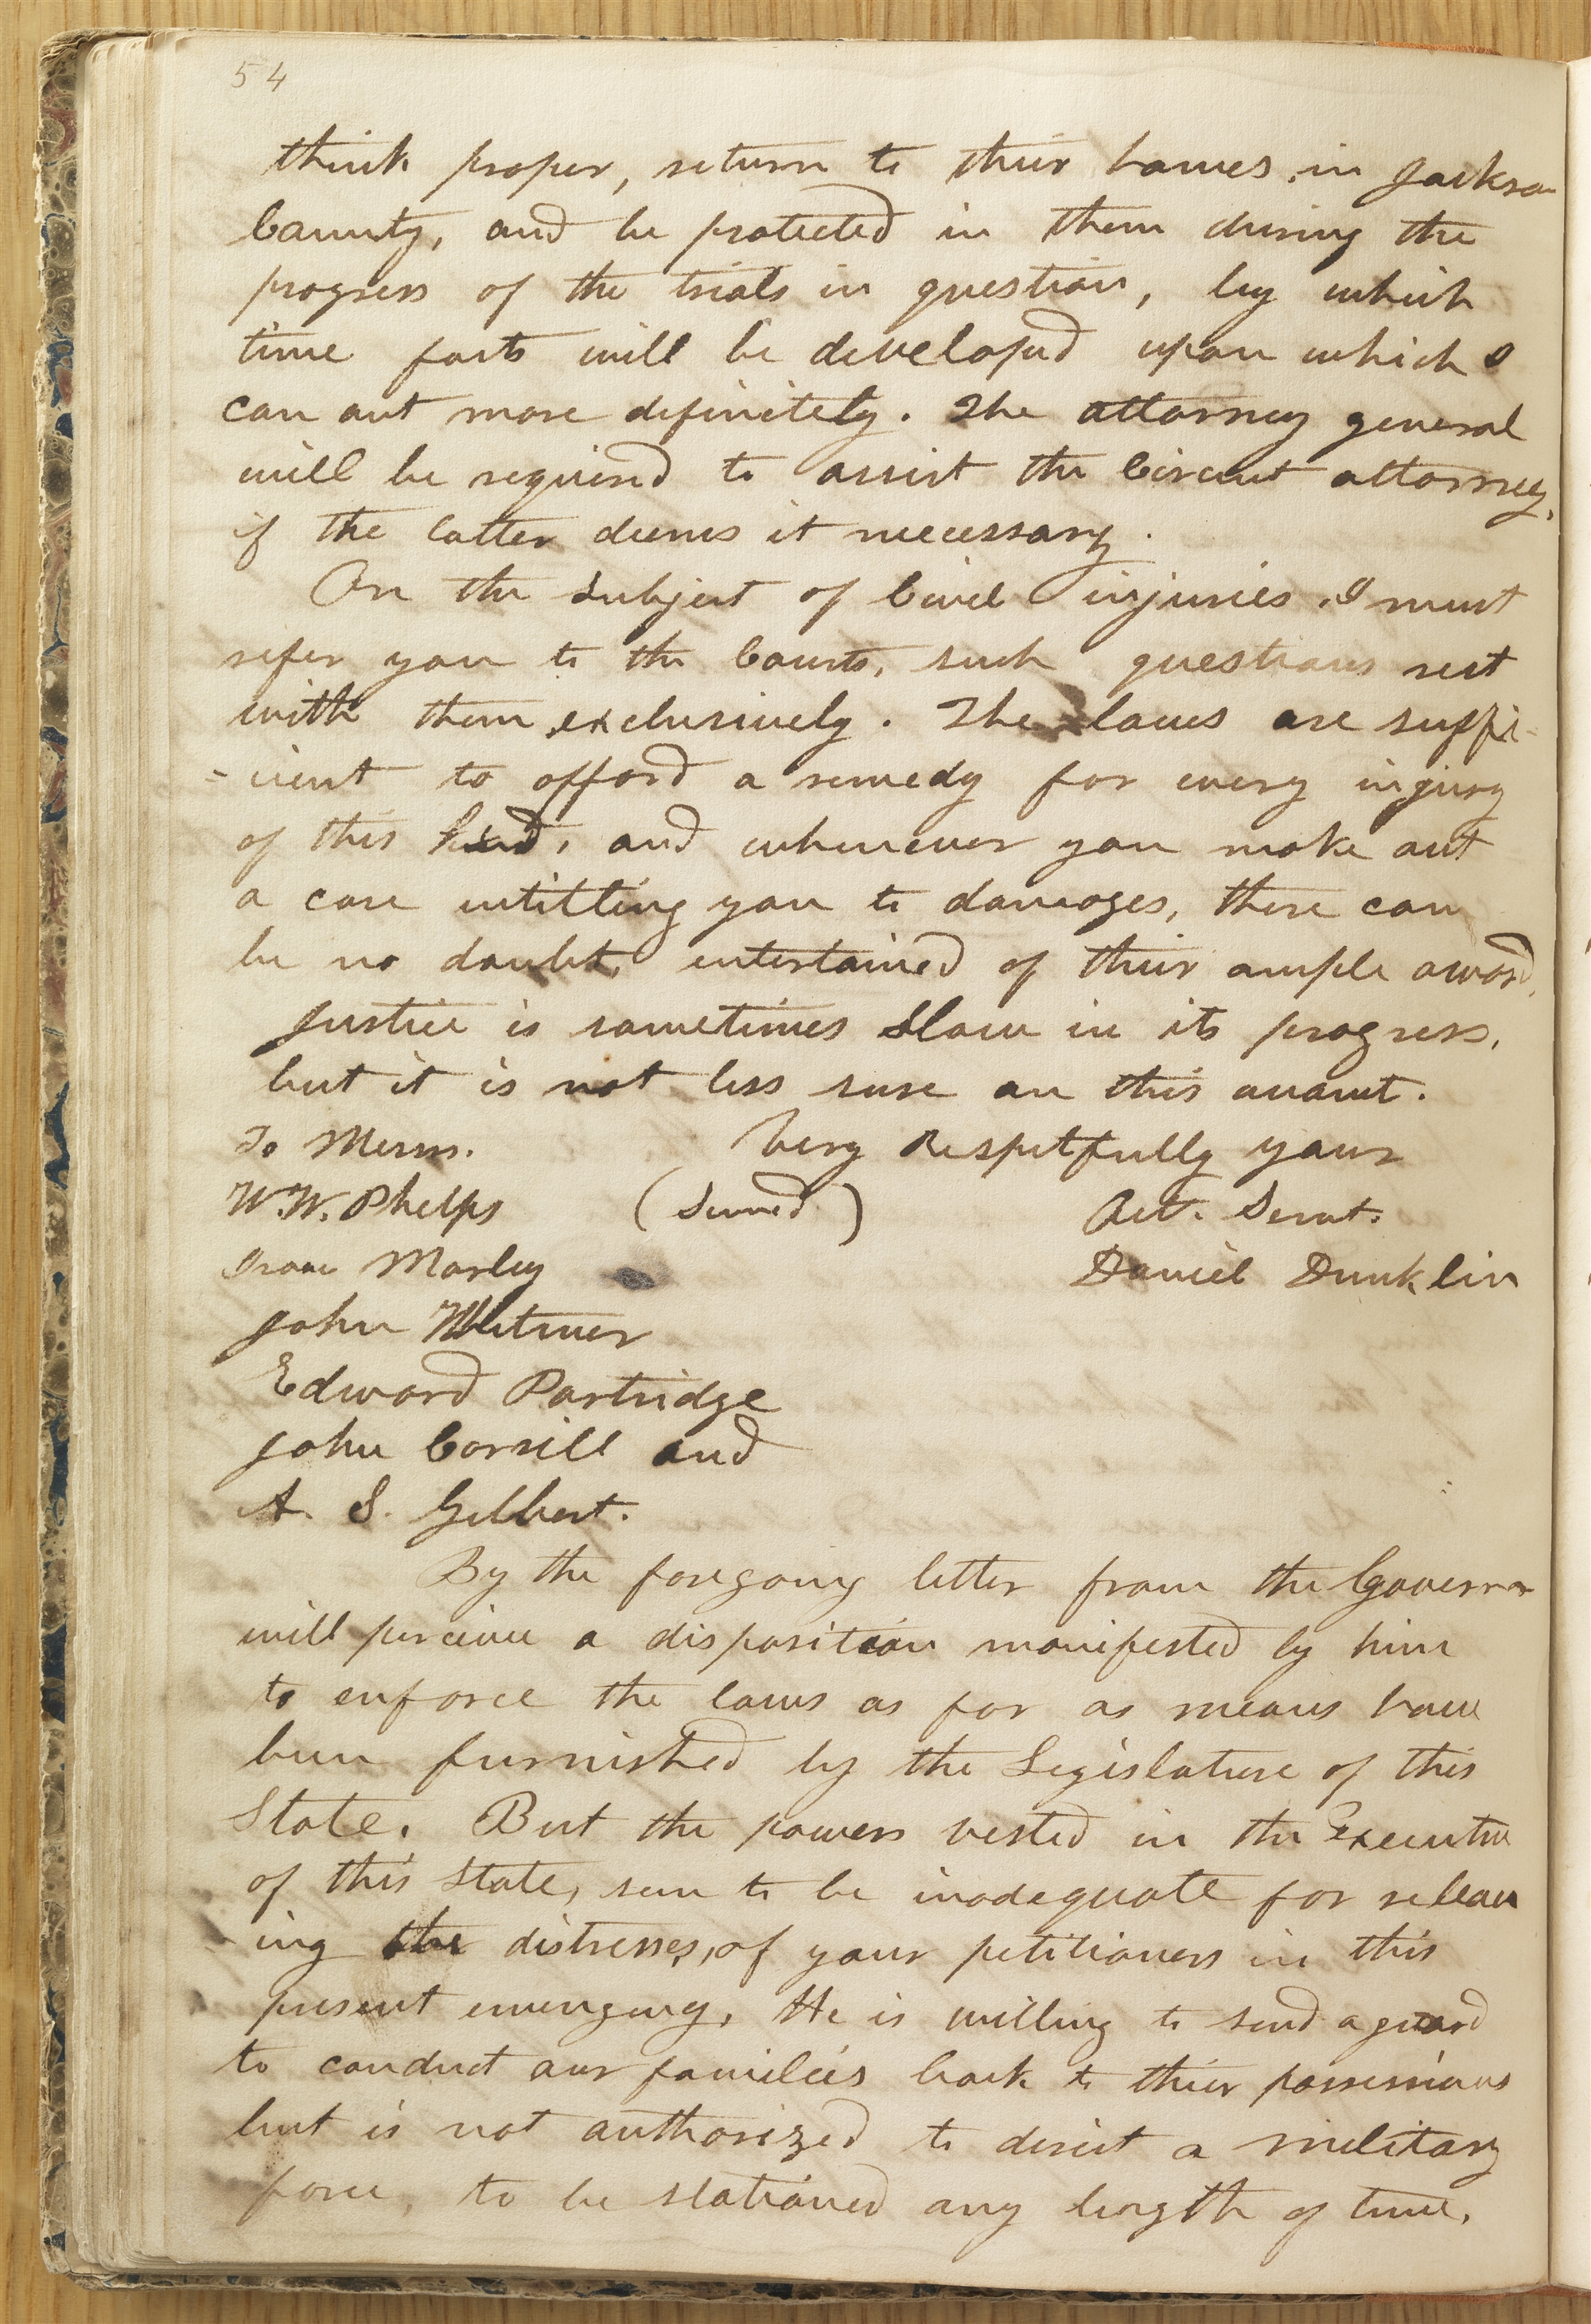 54
think proper, return to their homes, in Jackson
County, and be protected in them during the
progress of the trials in question, by which
time facts will be developed upon which I
can act more definitely. The attorney general
will be required to assist the Circuit attorney,
if the latter deems it necessary.
On the subject of Civil injuries, I must
refer you to the Courts, such questions rest
with them exclusively. The laws are suffi-
-cient to afford a remedy for every injury
of this kind, and whenever you make out
a case entitling you to damages, there can
be no doubt, entertained of their ample award.
Justice is sometimes slow in its progress,
but it is not less sure on this account.
To Messrs. Very Respetfully yours
W. W. Phelps (Signed) Obt. Servt.
Isaac Morley Daniel Dunklin
John Whitmer
Edward Partridge
John Corrill and
A. S. Gilbert.
By the foregoing letter from the Governor
will perceive a disposition manifested by him
to enforce the laws as far as means have
been furnished by the Legislature of this
State. But the powers vested in the Executive
of this State, seem to be inadequate for reliev
ing the distresses, of your petitioners in this
present emergency, He is willing to send a guard
to conduct our families back to their possessions
but is not authorized to direct a military
force, to be stationed any length of time,